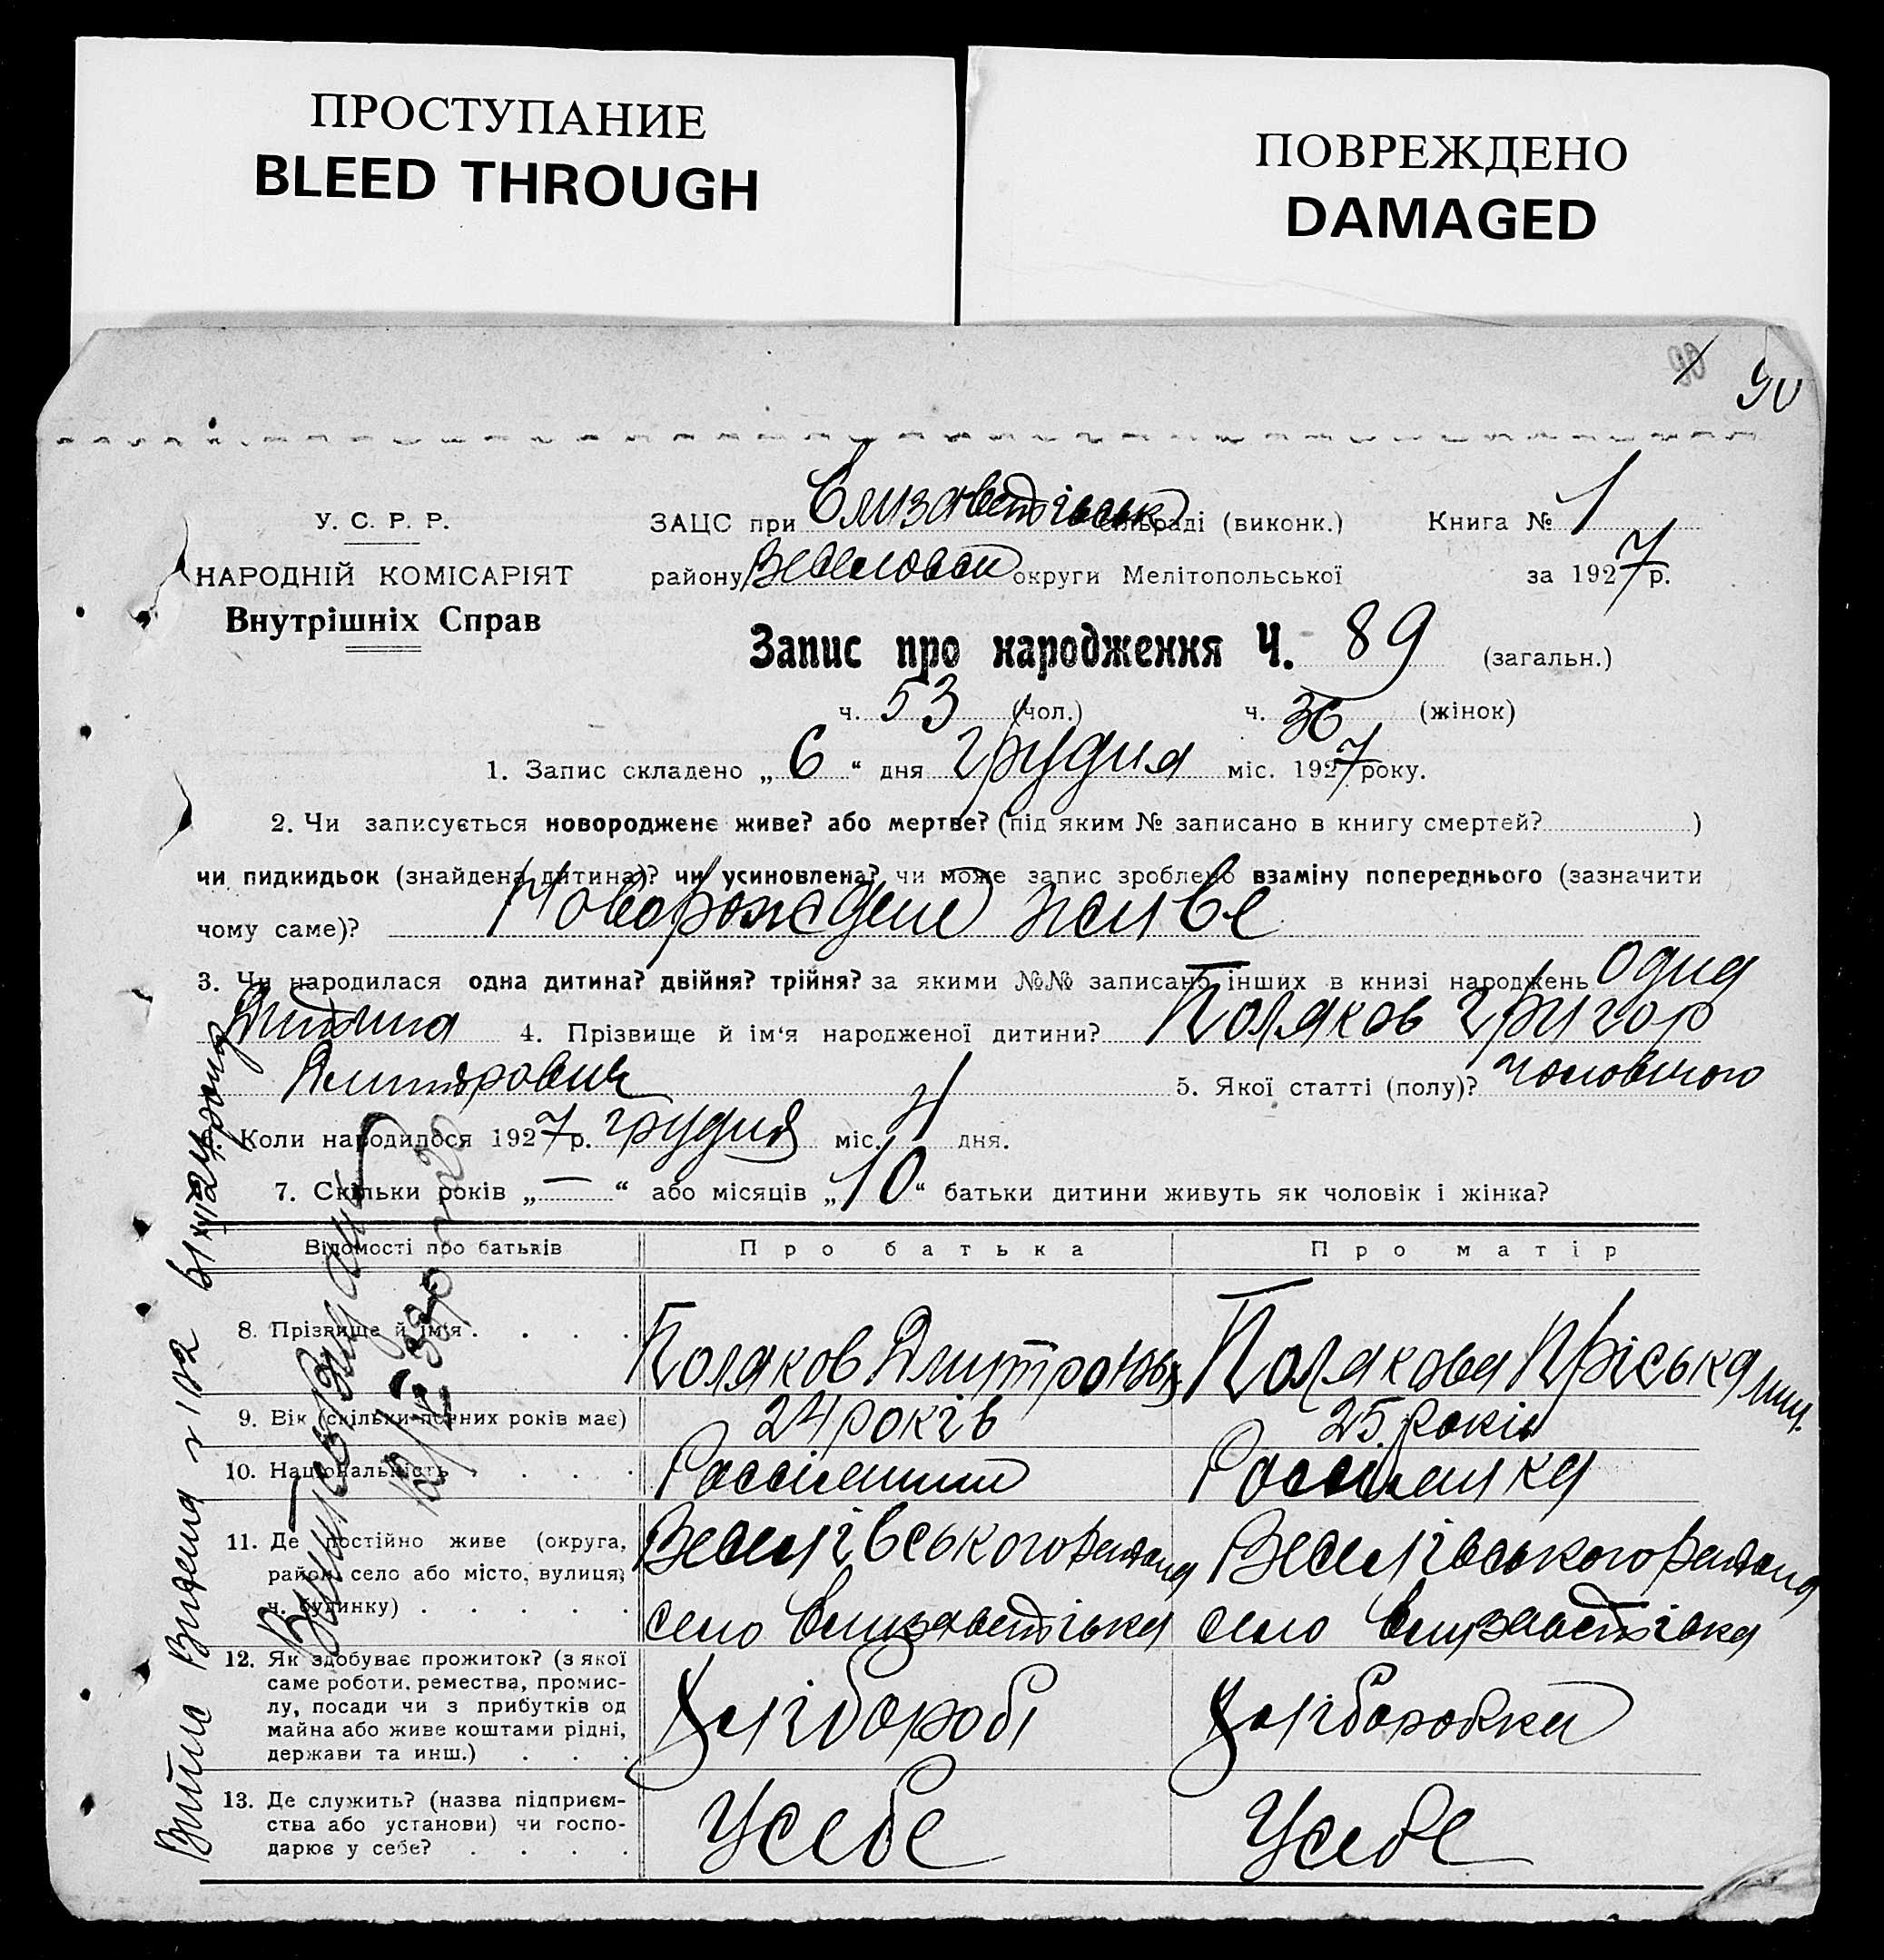 ПРОСТУПАНИЕ
BLEED THROUGH
ПОВРЕЖДЕНО
DAMAGED
90
У. С. Р. Р.
НАРОДНІЙ КОМІСАРІЯТ
Внутрішніх Справ
ЗАЦС при Єлизаветівськ сільраді (виконк.) Книга № 1
району Веселовськ округи Мелітопольської за 1927 р.
Запис про народження Ч. 89 (загальн.)
ч. 53 (чол.) ч. 36 (жінок)
1. Запис складено „ 6 “ дня грудня міс. 1927 року.
2. Чи записується новороджене живе? або мертве? (під яким № записано в книгу смертей? )
чи пидкидьок (знайдена дитина)? чи усиновлена? чи може запис зроблено взаміну попереднього (зазначити
чому саме)? Новорождене живе
3. Чи народилася одна дитина? двійня? трійня? за якими №№ записано інших в книзі народжень Одна
дитина 4. Прізвище й ім'я народженої дитини? Поляков Григор
Дмитрович 5. Якої статті (полу)? чоловічого
Коли народилося 1927 р. грудня міс. 4 дня.
7. Скільки років „ — “ або місяців „ 10 “ батьки дитини живуть як чоловік і жінка?
Відомості про батьків Про батька Про матір
8. Прізвище й ім'я . . . . Поляков Дмитро Полякова Пріська
9. Вік (скільки повних років має) 24 років 25 років
10. Національність . . . . Россіянин Россіянка
11. Де постійно живе (округа, район, село або місто, вулиця, ч. будинку) . . . . .
Веселівського району Веселівського району
село Єлизаветівка село Єлизаветівка
12. Як здобуває прожиток? (з якої
саме роботи, ремества, промис-
лу, посади чи з прибутків од
майна або живе коштами рідні,
держави та инш.) . . .
Хлібороб Хлібородка
13. Де служить? (назва підприєм-
ства або установи) чи госпо-
дарює у себе? . . . .
У себе У себе